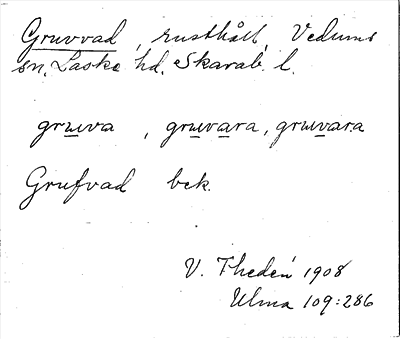 Gruvvad, rusthåll, Vedums
sn, Laske hd. Skarab. l.
gruva, gruvara, gruvara
Grufvad bek.
V. Thedén 1908
Ulma 109:286